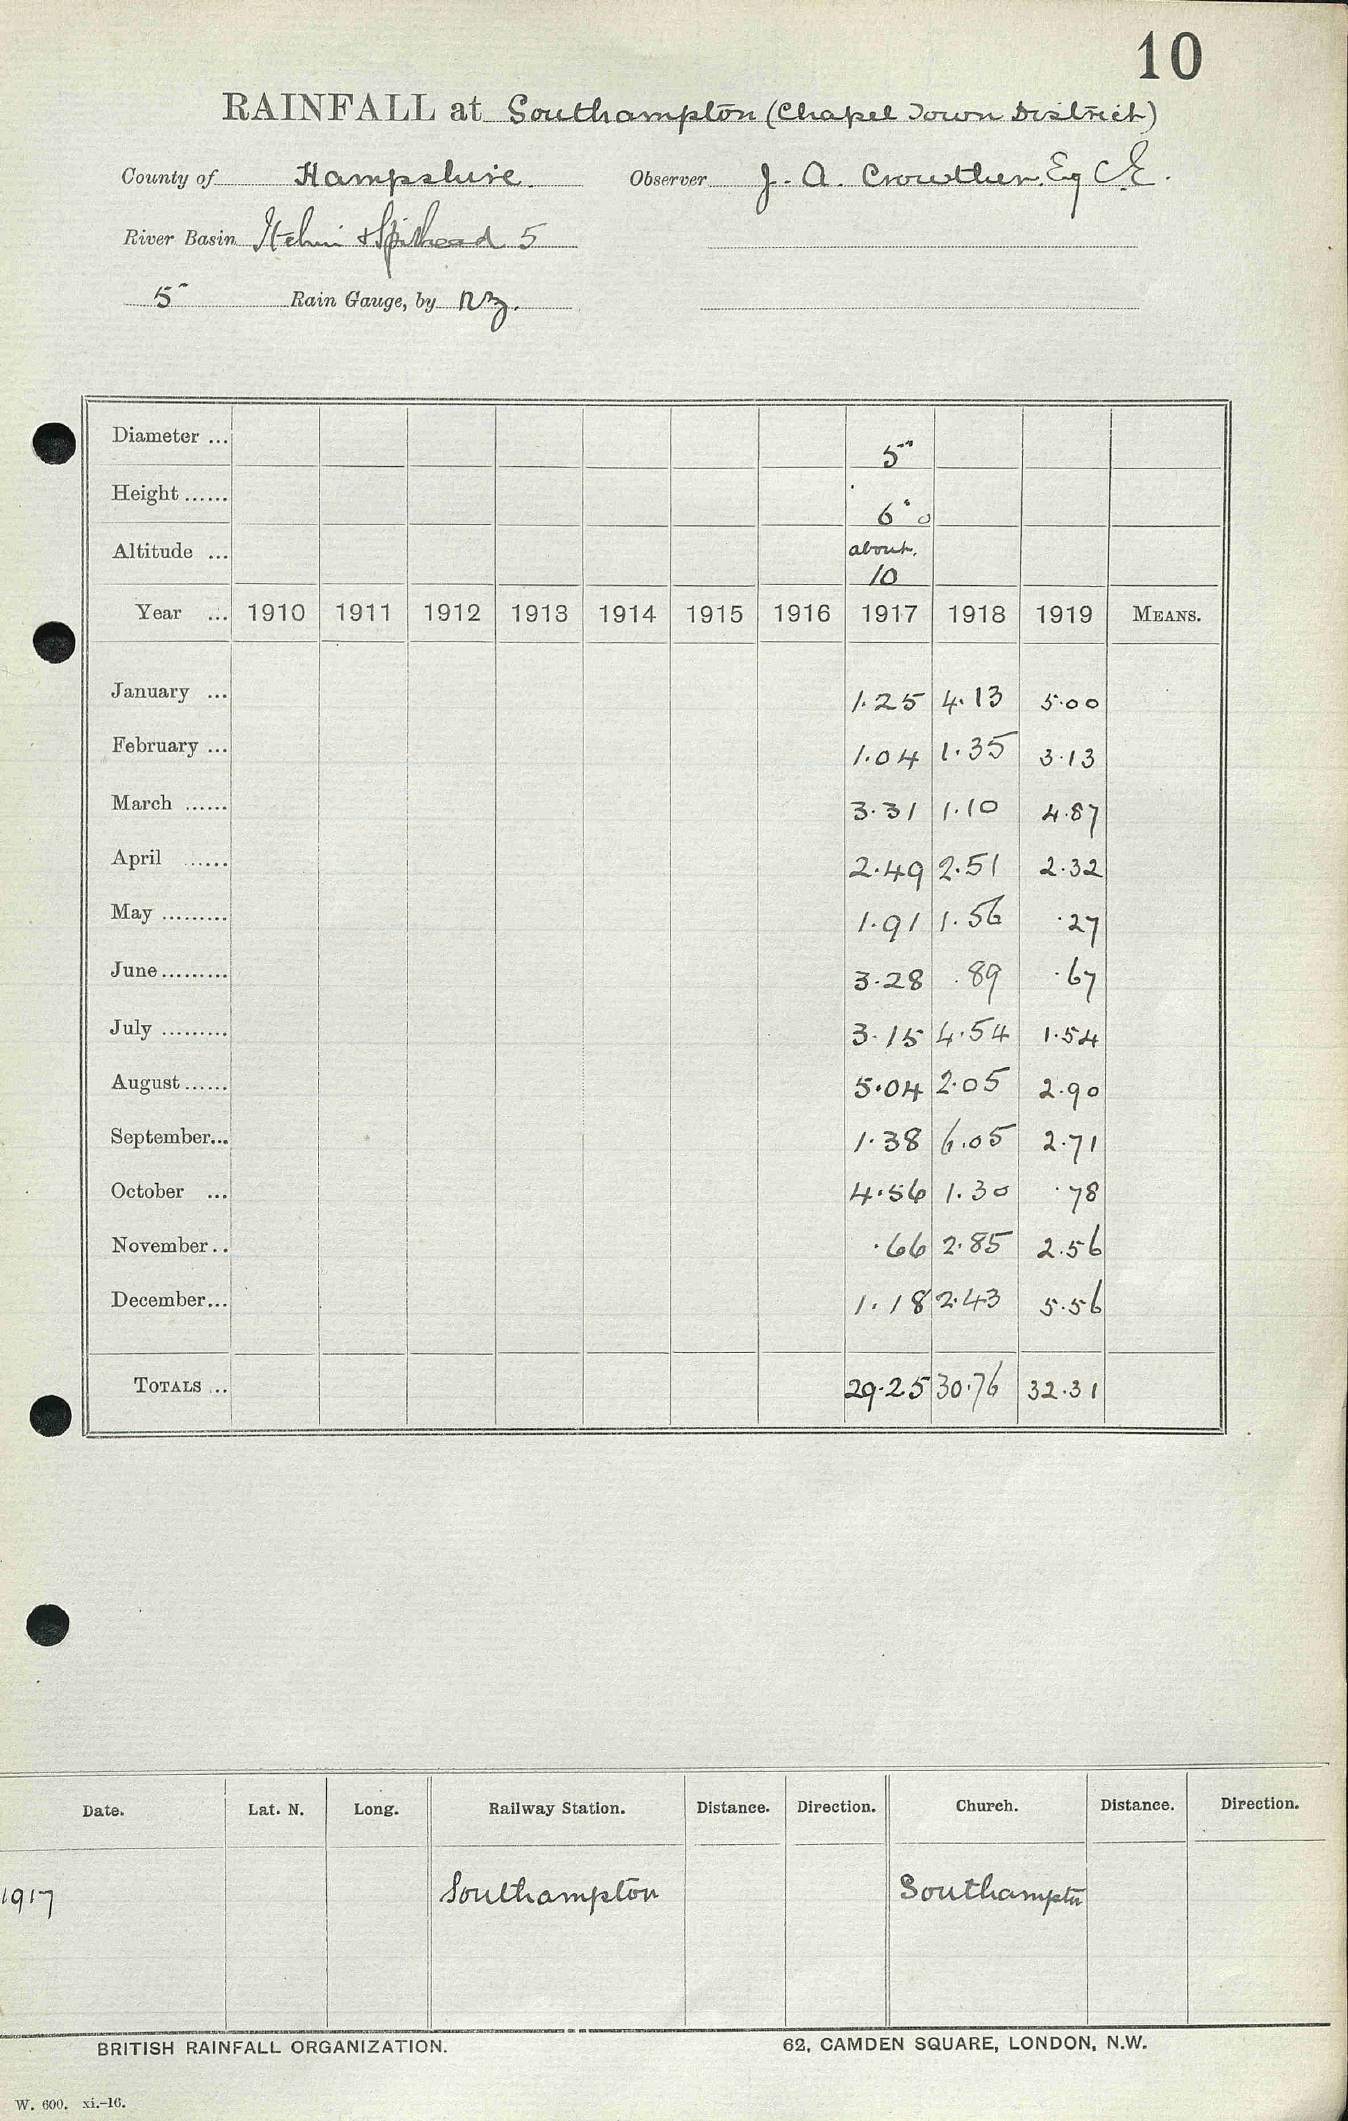 10
RAINFALL at Southampton (Chapel Town District)
County of Hampshire. Observer J. A. Crowther. Esq C.E.
River Basin Itchen & Spithead 5
5" Rain Gauge, by
Diameter ... 5"
Height ...... 6" 0
Altitude ... about. 10
Year ... 1910 1911 1912 1913 1914 1915 1916 1917 1918 1919 MEANS.
January ... 1.25 4.13 5.00
February ... 1.04 1.35 3.13
March ...... 3.31 1.10 4.87
April ...... 2.49 2.51 2.32
May ......... 1.91 1.56 .27
June ......... 3.28 .89 .67
July ......... 3.15 4.54 1.54
August ...... 5.04 2.05 2.90
September... 1.38 6.05 2.71
October ... 4.56 1.30 .78
November.. .66 2.85 2.56
December... 1.18 2.43 5.56
TOTALS ... 29.25 30.76 32.31
Date. Lat. N. Long. Railway Station. Distance. Direction. Church. Distance. Direction.
1917 Southampton Southampton
BRITISH RAINFALL ORGANIZATION. 62, CAMDEN SQUARE, LONDON, N.W.
W. 600. xi.-16.